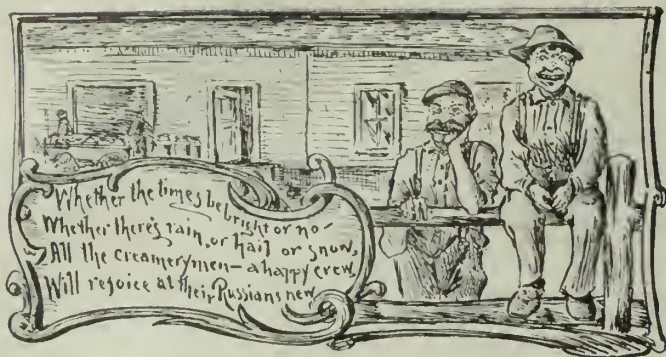 Whether the times be bright or no—
Whether there's rain, or hail or snow,
All the creamerymen— a happy crew
Will rejoice at their Russians new